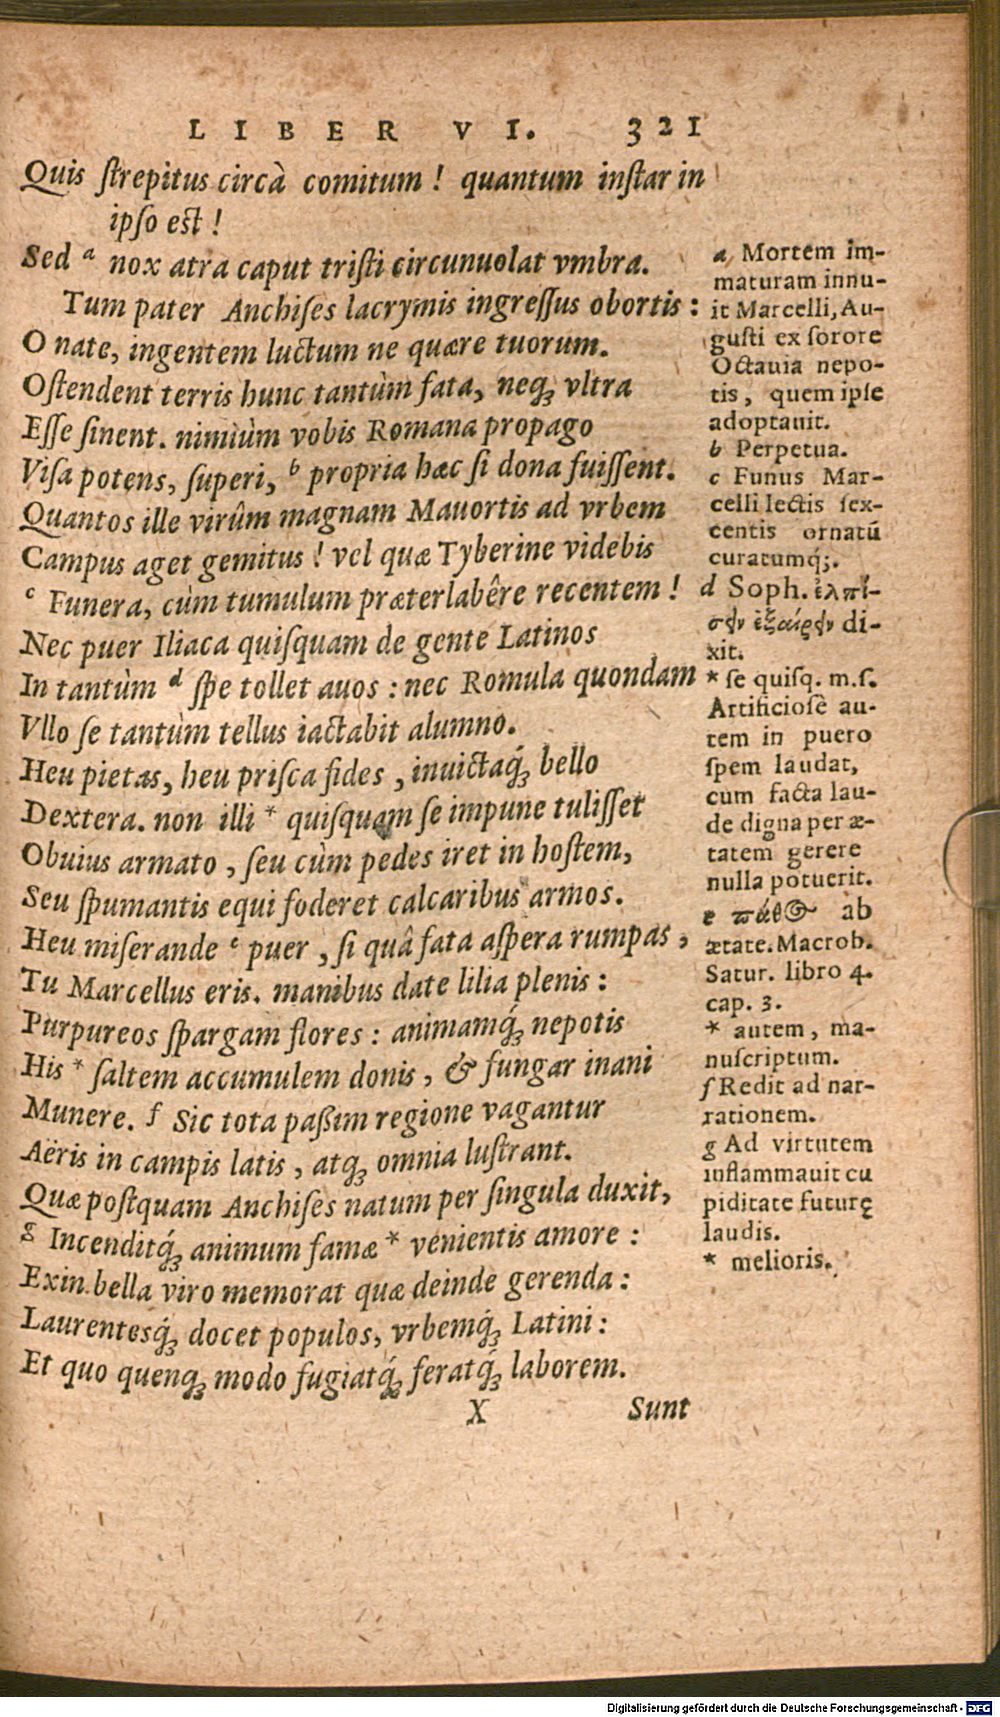 LIBER VI. 321
Quis ſtrepitus circà comitum! quantum inſtar in
ipſo eſt!
Sed ᵃ nox atra caput triſti circunuolat vmbra.
Tum pater Anchiſes lacrymis ingreſſus obortis:
O nate, ingentem luctum ne quære tuorum.
Oſtendent terris hunc tantùm fata, neqꝫ vltra
Eſſe ſinent. nimiùm vobis Romana propago
Viſa potens, ſuperi, ᵇ propria hæc ſi dona fuiſſent.
Quantos ille virûm magnam Mauortis ad vrbem
Campus aget gemitus! vel quæ Tyberine videbis
ᶜ Funera, cùm tumulum præterlabêre recentem!
Nec puer Iliaca quiſquam de gente Latinos
In tantùm ᵈ ſpe tollet auos: nec Romula quondam
Vllo ſe tantùm tellus iactabit alumno.
Heu pietas, heu priſca fides, inuictaqꝫ́ bello
Dextera. non illi * quiſquam ſe impune tuliſſet
Obuius armato, ſeu cùm pedes iret in hoſtem,
Seu ſpumantis equi foderet calcaribus armos.
Heu miſerande ᵉ puer, ſi quâ fata aſpera rumpas,
Tu Marcellus eris. manibus date lilia plenis:
Purpureos ſpargam flores: animamqꝫ́ nepotis
His * ſaltem accumulem donis, & fungar inani
Munere. f Sic tota paßim regione vagantur
Aëris in campis latis, atqꝫ omnia luſtrant.
Quæ poſtquam Anchiſes natum per ſingula duxit,
ᵍ Incenditqꝫ́ animum famæ * venientis amore:
Exin bella viro memorat quæ deinde gerenda:
Laurentesqꝫ́ docet populos, vrbemqꝫ́ Latini:
Et quo quenqꝫ modo fugiatqꝫ́ feratqꝫ́ laborem.
X Sunt
a Mortem im-
maturam innu-
it Marcelli, Au-
guſti ex ſorore
Octauia nepo-
tis, quem ipſe
adoptauit.
b Perpetua.
c Funus Mar-
celli lectis ſex-
centis ornatū
curatumq́;.
d Soph. ἐλπί-
σιν ἐξαίρειν di-
xit.
* ſe quiſq. m.ſ.
Artificioſè au-
tem in puero
ſpem laudat,
cum facta lau-
de digna per æ-
tatem gerere
nulla potuerit.
e πάθος ab
ætate. Macrob.
Satur. libro 4.
cap. 3.
* autem, ma-
nuſcriptum.
f Redit ad nar-
rationem.
g Ad virtutem
inflammauit cu
piditate futurę
laudis.
* melioris.
Digitalisierung gefördert durch die Deutsche Forschungsgemeinschaft - DFG